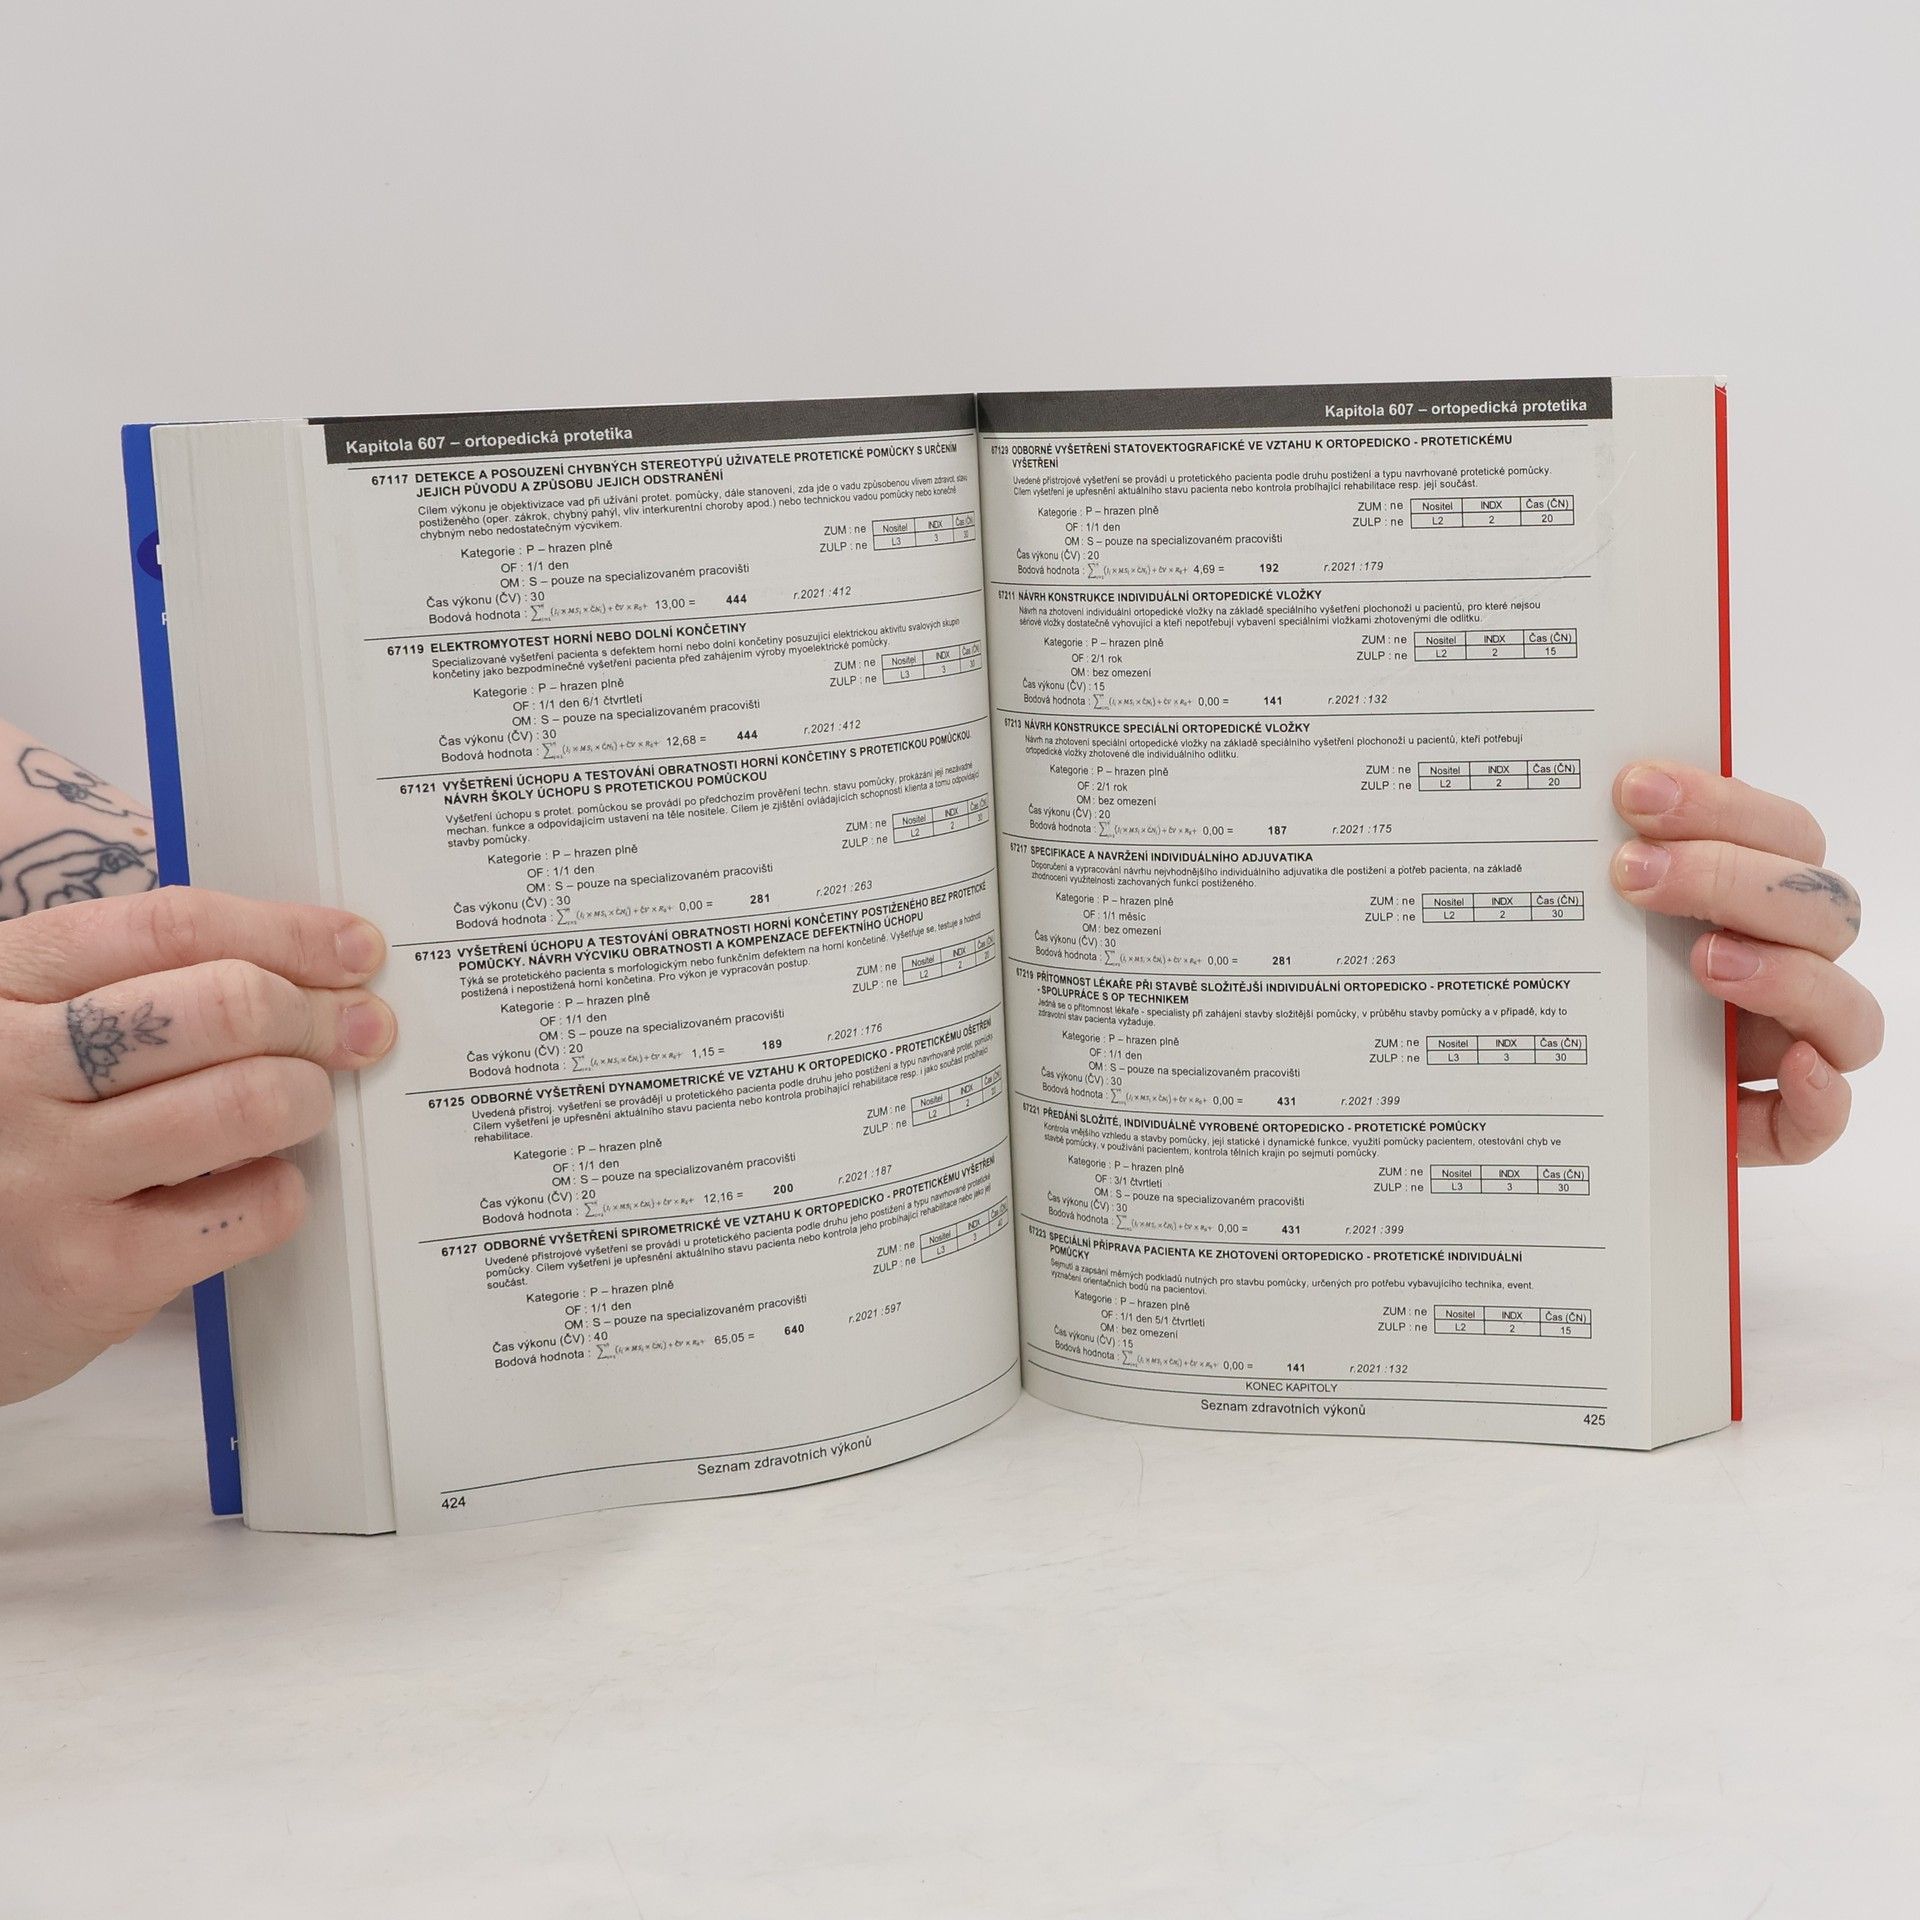 Kapitola 607 – ortopedická protetika
67117 DETEKCE A POSOUZENÍ CHYBNÝCH STEREOTYPŮ UŽIVATELE PROTETICKÉ POMŮCKY S URČENÍM
JEJICH PŮVODU A ZPŮSOBU JEJICH ODSTRANĚNÍ
Cílem výkonu je objektivizace vad při užívání protet. pomůcky, dále stanovení, zda jde o vadu způsobenou vlivem zdravot. stavu
postiženého (oper. zákrok, chybný pahýl, vliv interkurentní choroby apod.) nebo technickou vadou pomůcky nebo konečně
chybným nebo nedostatečným výcvikem.
Kategorie : P – hrazen plně
OF : 1/1 den
OM : S – pouze na specializovaném pracovišti
ZUM : ne
ZULP : ne
Nositel INDX Čas (ČN)
L3 3 30
Čas výkonu (ČV) : 30
Bodová hodnota : ∑ (Ii × MSi × ČNi) + ČV × R0 + 13,00 = 444 r.2021 :412
67119 ELEKTROMYOTEST HORNÍ NEBO DOLNÍ KONČETINY
Specializované vyšetření pacienta s defektem horní nebo dolní končetiny posuzující elektrickou aktivitu svalových skupin
končetiny jako bezpodmínečné vyšetření pacienta před zahájením výroby myoelektrické pomůcky.
Kategorie : P – hrazen plně
OF : 1/1 den 6/1 čtvrtletí
OM : S – pouze na specializovaném pracovišti
ZUM : ne
ZULP : ne
Nositel INDX Čas (ČN)
L3 3 30
Čas výkonu (ČV) : 30
Bodová hodnota : ∑ (Ii × MSi × ČNi) + ČV × R0 + 12,68 = 444 r.2021 :412
67121 VYŠETŘENÍ ÚCHOPU A TESTOVÁNÍ OBRATNOSTI HORNÍ KONČETINY S PROTETICKOU POMŮCKOU.
NÁVRH ŠKOLY ÚCHOPU S PROTETICKOU POMŮCKOU
Vyšetření úchopu s protet. pomůckou se provádí po předchozím prověření techn. stavu pomůcky, prokázání její nezávadné
mechan. funkce a odpovídajícím ustavení na těle nositele. Cílem je zjištění ovládajících schopností klienta a tomu odpovídající
stavby pomůcky.
Kategorie : P – hrazen plně
OF : 1/1 den
OM : S – pouze na specializovaném pracovišti
ZUM : ne
ZULP : ne
Nositel INDX Čas (ČN)
L2 2 30
Čas výkonu (ČV) : 30
Bodová hodnota : ∑ (Ii × MSi × ČNi) + ČV × R0 + 0,00 = 281 r.2021 :263
67123 VYŠETŘENÍ ÚCHOPU A TESTOVÁNÍ OBRATNOSTI HORNÍ KONČETINY POSTIŽENÉHO BEZ PROTETICKÉ
POMŮCKY. NÁVRH VÝCVIKU OBRATNOSTI A KOMPENZACE DEFEKTNÍHO ÚCHOPU
Týká se protetického pacienta s morfologickým nebo funkčním defektem na horní končetině. Vyšetřuje se, testuje a hodnotí
postižená i nepostižená horní končetina. Pro výkon je vypracován postup.
Kategorie : P – hrazen plně
OF : 1/1 den
OM : S – pouze na specializovaném pracovišti
ZUM : ne
ZULP : ne
Nositel INDX Čas (ČN)
L2 2 20
Čas výkonu (ČV) : 20
Bodová hodnota : ∑ (Ii × MSi × ČNi) + ČV × R0 + 1,15 = 189 r.2021 :176
67125 ODBORNÉ VYŠETŘENÍ DYNAMOMETRICKÉ VE VZTAHU K ORTOPEDICKO - PROTETICKÉMU OŠETŘENÍ
Uvedená přístroj. vyšetření se provádějí u protetického pacienta podle druhu jeho postižení a typu navrhované protet. pomůcky.
Cílem vyšetření je upřesnění aktuálního stavu pacienta nebo kontrola probíhající rehabilitace resp. i jako součást probíhající
rehabilitace.
Kategorie : P – hrazen plně
OF : 1/1 den
OM : S – pouze na specializovaném pracovišti
ZUM : ne
ZULP : ne
Nositel INDX Čas (ČN)
L2 2 20
Čas výkonu (ČV) : 20
Bodová hodnota : ∑ (Ii × MSi × ČNi) + ČV × R0 + 12,16 = 200 r.2021 :187
67127 ODBORNÉ VYŠETŘENÍ SPIROMETRICKÉ VE VZTAHU K ORTOPEDICKO - PROTETICKÉMU VYŠETŘENÍ
Uvedené přístrojové vyšetření se provádí u protetického pacienta podle druhu jeho postižení a typu navrhované protetické
pomůcky. Cílem vyšetření je upřesnění aktuálního stavu pacienta nebo kontrola jeho probíhající rehabilitace nebo jako její
součást.
Kategorie : P – hrazen plně
OF : 1/1 den
OM : S – pouze na specializovaném pracovišti
ZUM : ne
ZULP : ne
Nositel INDX Čas (ČN)
L3 3 40
Čas výkonu (ČV) : 40
Bodová hodnota : ∑ (Ii × MSi × ČNi) + ČV × R0 + 65,05 = 640 r.2021 :597
Seznam zdravotních výkonů
424
Kapitola 607 – ortopedická protetika
67129 ODBORNÉ VYŠETŘENÍ STATOVEKTOGRAFICKÉ VE VZTAHU K ORTOPEDICKO - PROTETICKÉMU
VYŠETŘENÍ
Uvedené přístrojové vyšetření se provádí u protetického pacienta podle druhu postižení a typu navrhované protetické pomůcky.
Cílem vyšetření je upřesnění aktuálního stavu pacienta nebo kontrola probíhající rehabilitace resp. její součást.
Kategorie : P – hrazen plně
OF : 1/1 den
OM : S – pouze na specializovaném pracovišti
ZUM : ne
ZULP : ne
Nositel INDX Čas (ČN)
L2 2 20
Čas výkonu (ČV) : 20
Bodová hodnota : ∑ (Ii × MSi × ČNi) + ČV × R0 + 4,69 = 192 r.2021 :179
67211 NÁVRH KONSTRUKCE INDIVIDUÁLNÍ ORTOPEDICKÉ VLOŽKY
Návrh na zhotovení individuální ortopedické vložky na základě speciálního vyšetření plochonoží u pacientů, pro které nejsou
sériové vložky dostatečně vyhovující a kteří nepotřebují vybavení speciálními vložkami zhotovenými dle odlitku.
Kategorie : P – hrazen plně
OF : 2/1 rok
OM : bez omezení
ZUM : ne
ZULP : ne
Nositel INDX Čas (ČN)
L2 2 15
Čas výkonu (ČV) : 15
Bodová hodnota : ∑ (Ii × MSi × ČNi) + ČV × R0 + 0,00 = 141 r.2021 :132
67213 NÁVRH KONSTRUKCE SPECIÁLNÍ ORTOPEDICKÉ VLOŽKY
Návrh na zhotovení speciální ortopedické vložky na základě speciálního vyšetření plochonoží u pacientů, kteří potřebují
ortopedické vložky zhotovené dle individuálního odlitku.
Kategorie : P – hrazen plně
OF : 2/1 rok
OM : bez omezení
ZUM : ne
ZULP : ne
Nositel INDX Čas (ČN)
L2 2 20
Čas výkonu (ČV) : 20
Bodová hodnota : ∑ (Ii × MSi × ČNi) + ČV × R0 + 0,00 = 187 r.2021 :175
67217 SPECIFIKACE A NAVRŽENÍ INDIVIDUÁLNÍHO ADJUVATIKA
Doporučení a vypracování návrhu nejvhodnějšího individuálního adjuvatika dle postižení a potřeb pacienta, na základě
zhodnocení využitelnosti zachovaných funkcí postiženého.
Kategorie : P – hrazen plně
OF : 1/1 měsíc
OM : bez omezení
ZUM : ne
ZULP : ne
Nositel INDX Čas (ČN)
L2 2 30
Čas výkonu (ČV) : 30
Bodová hodnota : ∑ (Ii × MSi × ČNi) + ČV × R0 + 0,00 = 281 r.2021 :263
67219 PŘÍTOMNOST LÉKAŘE PŘI STAVBĚ SLOŽITĚJŠÍ INDIVIDUÁLNÍ ORTOPEDICKO - PROTETICKÉ POMŮCKY
- SPOLUPRÁCE S OP TECHNIKEM
Jedná se o přítomnost lékaře - specialisty při zahájení stavby složitější pomůcky, v průběhu stavby pomůcky a v případě, kdy to
zdravotní stav pacienta vyžaduje.
Kategorie : P – hrazen plně
OF : 1/1 den
OM : S – pouze na specializovaném pracovišti
ZUM : ne
ZULP : ne
Nositel INDX Čas (ČN)
L3 3 30
Čas výkonu (ČV) : 30
Bodová hodnota : ∑ (Ii × MSi × ČNi) + ČV × R0 + 0,00 = 431 r.2021 :399
67221 PŘEDÁNÍ SLOŽITÉ, INDIVIDUÁLNĚ VYROBENÉ ORTOPEDICKO - PROTETICKÉ POMŮCKY
Kontrola vnějšího vzhledu a stavby pomůcky, její statické i dynamické funkce, využití pomůcky pacientem, otestování chyb ve
stavbě pomůcky, v používání pacientem, kontrola tělních krajin po sejmutí pomůcky.
Kategorie : P – hrazen plně
OF : 3/1 čtvrtletí
OM : S – pouze na specializovaném pracovišti
ZUM : ne
ZULP : ne
Nositel INDX Čas (ČN)
L3 3 30
Čas výkonu (ČV) : 30
Bodová hodnota : ∑ (Ii × MSi × ČNi) + ČV × R0 + 0,00 = 431 r.2021 :399
67223 SPECIÁLNÍ PŘÍPRAVA PACIENTA KE ZHOTOVENÍ ORTOPEDICKO - PROTETICKÉ INDIVIDUÁLNÍ
POMŮCKY
Sejmutí a zapsání měrných podkladů nutných pro stavbu pomůcky, určených pro potřebu vybavujícího technika, event.
vyznačení orientačních bodů na pacientovi.
Kategorie : P – hrazen plně
OF : 1/1 den 5/1 čtvrtletí
OM : bez omezení
ZUM : ne
ZULP : ne
Nositel INDX Čas (ČN)
L2 2 15
Čas výkonu (ČV) : 15
Bodová hodnota : ∑ (Ii × MSi × ČNi) + ČV × R0 + 0,00 = 141 r.2021 :132
KONEC KAPITOLY
Seznam zdravotních výkonů
425